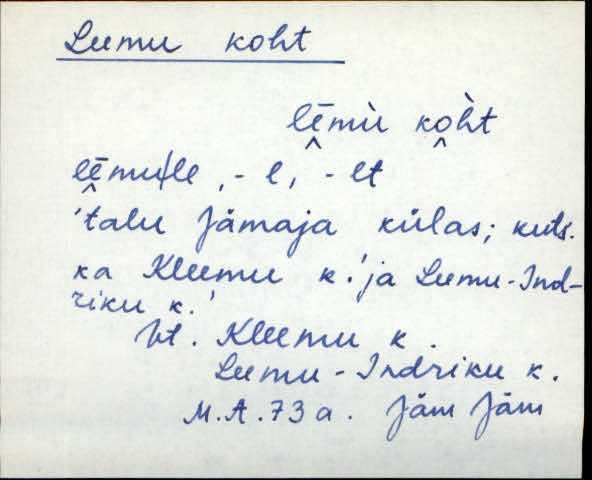 Leemu koht
lēmù kòht
lēmu/le, -l, -lt
'talu Jämaja külas; kuts.
ka Kleemu k.' ja Leemu-Ind-
riku k.'
Vt. Kleemu k.
Leemu-Indriku k.
M.A.73a. Jäm Jäm